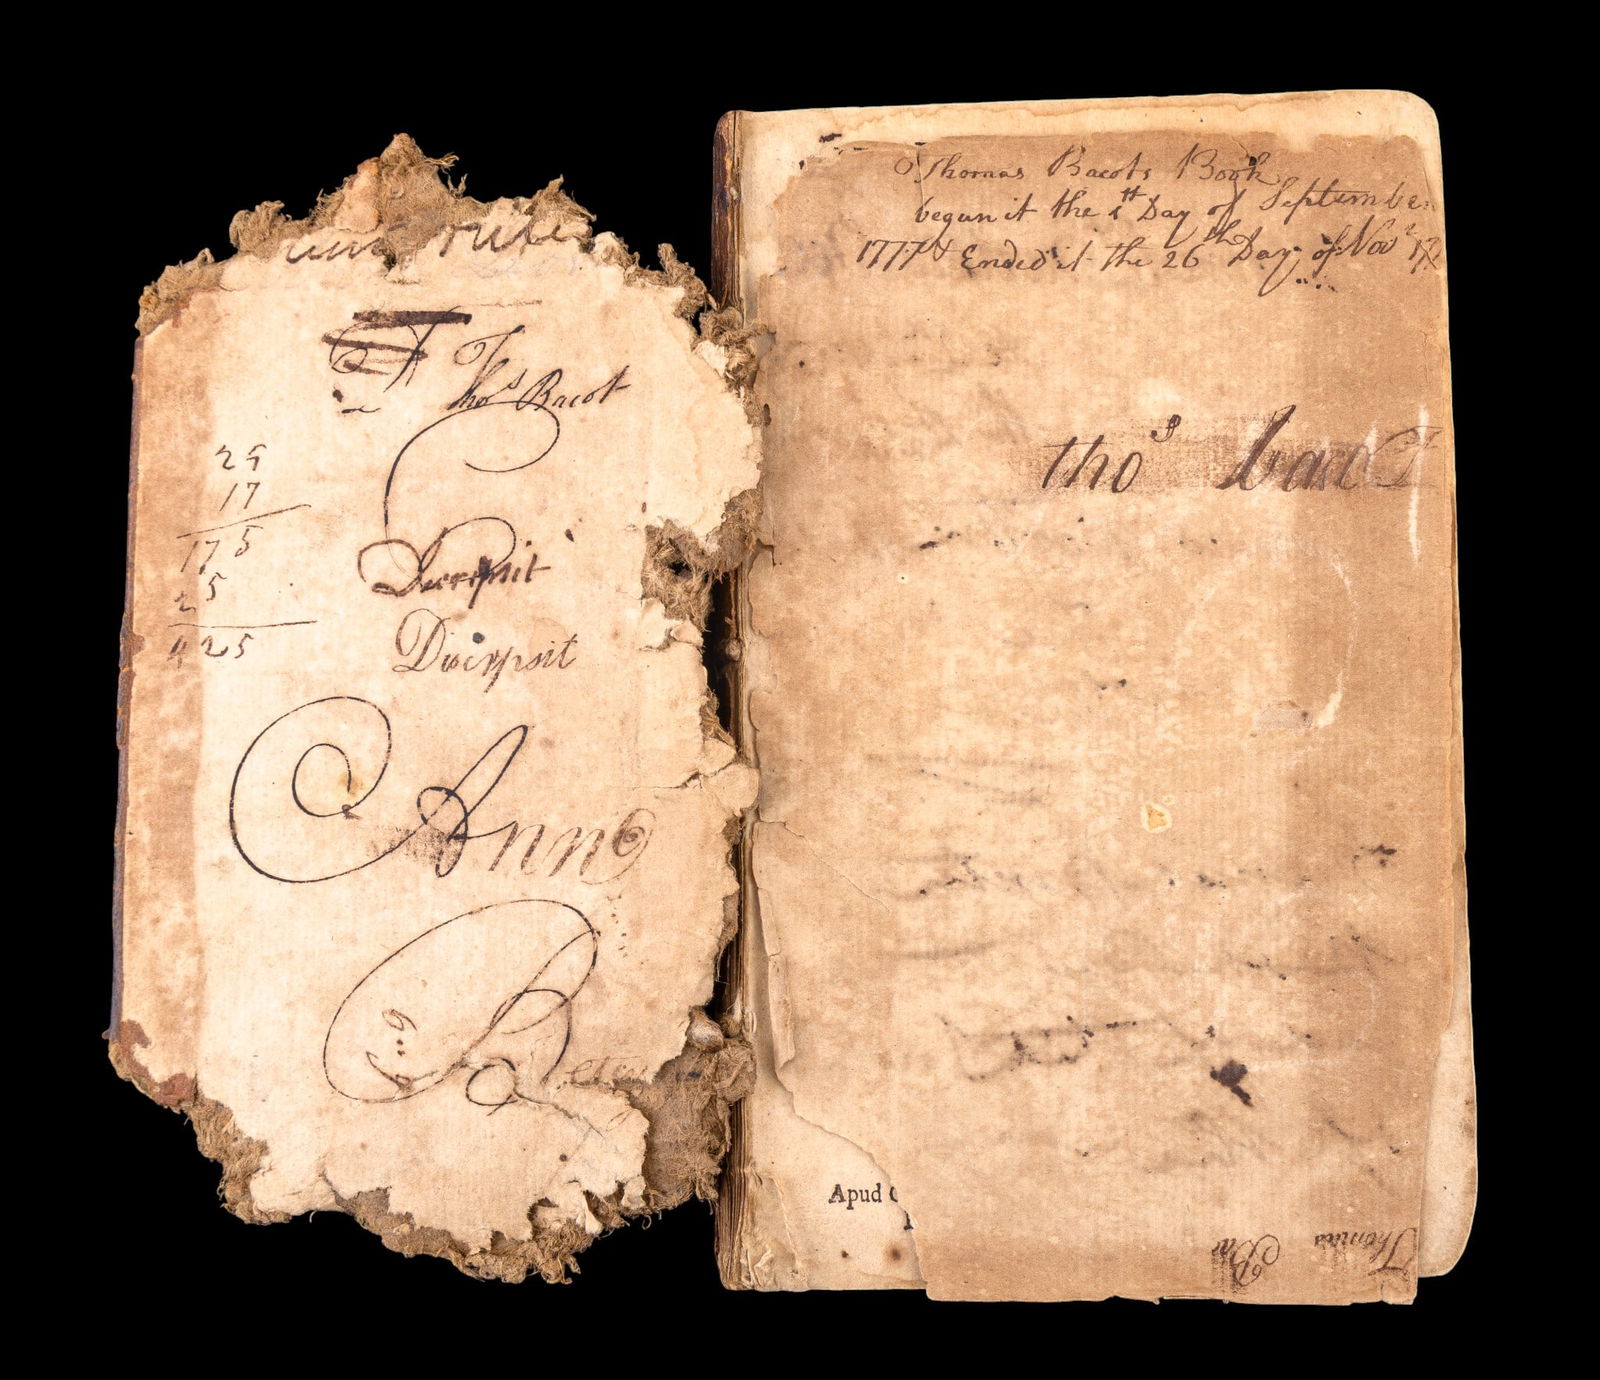 Thos Bacot
25
17
175
25
425
Discripsit
Discripsit
Ann
B
Thomas Bacots Book
begun it the 1st Day of September
1777 & Ended it the 26th Day of Novr 17
thos bacot
Apud
Thomas
Ba